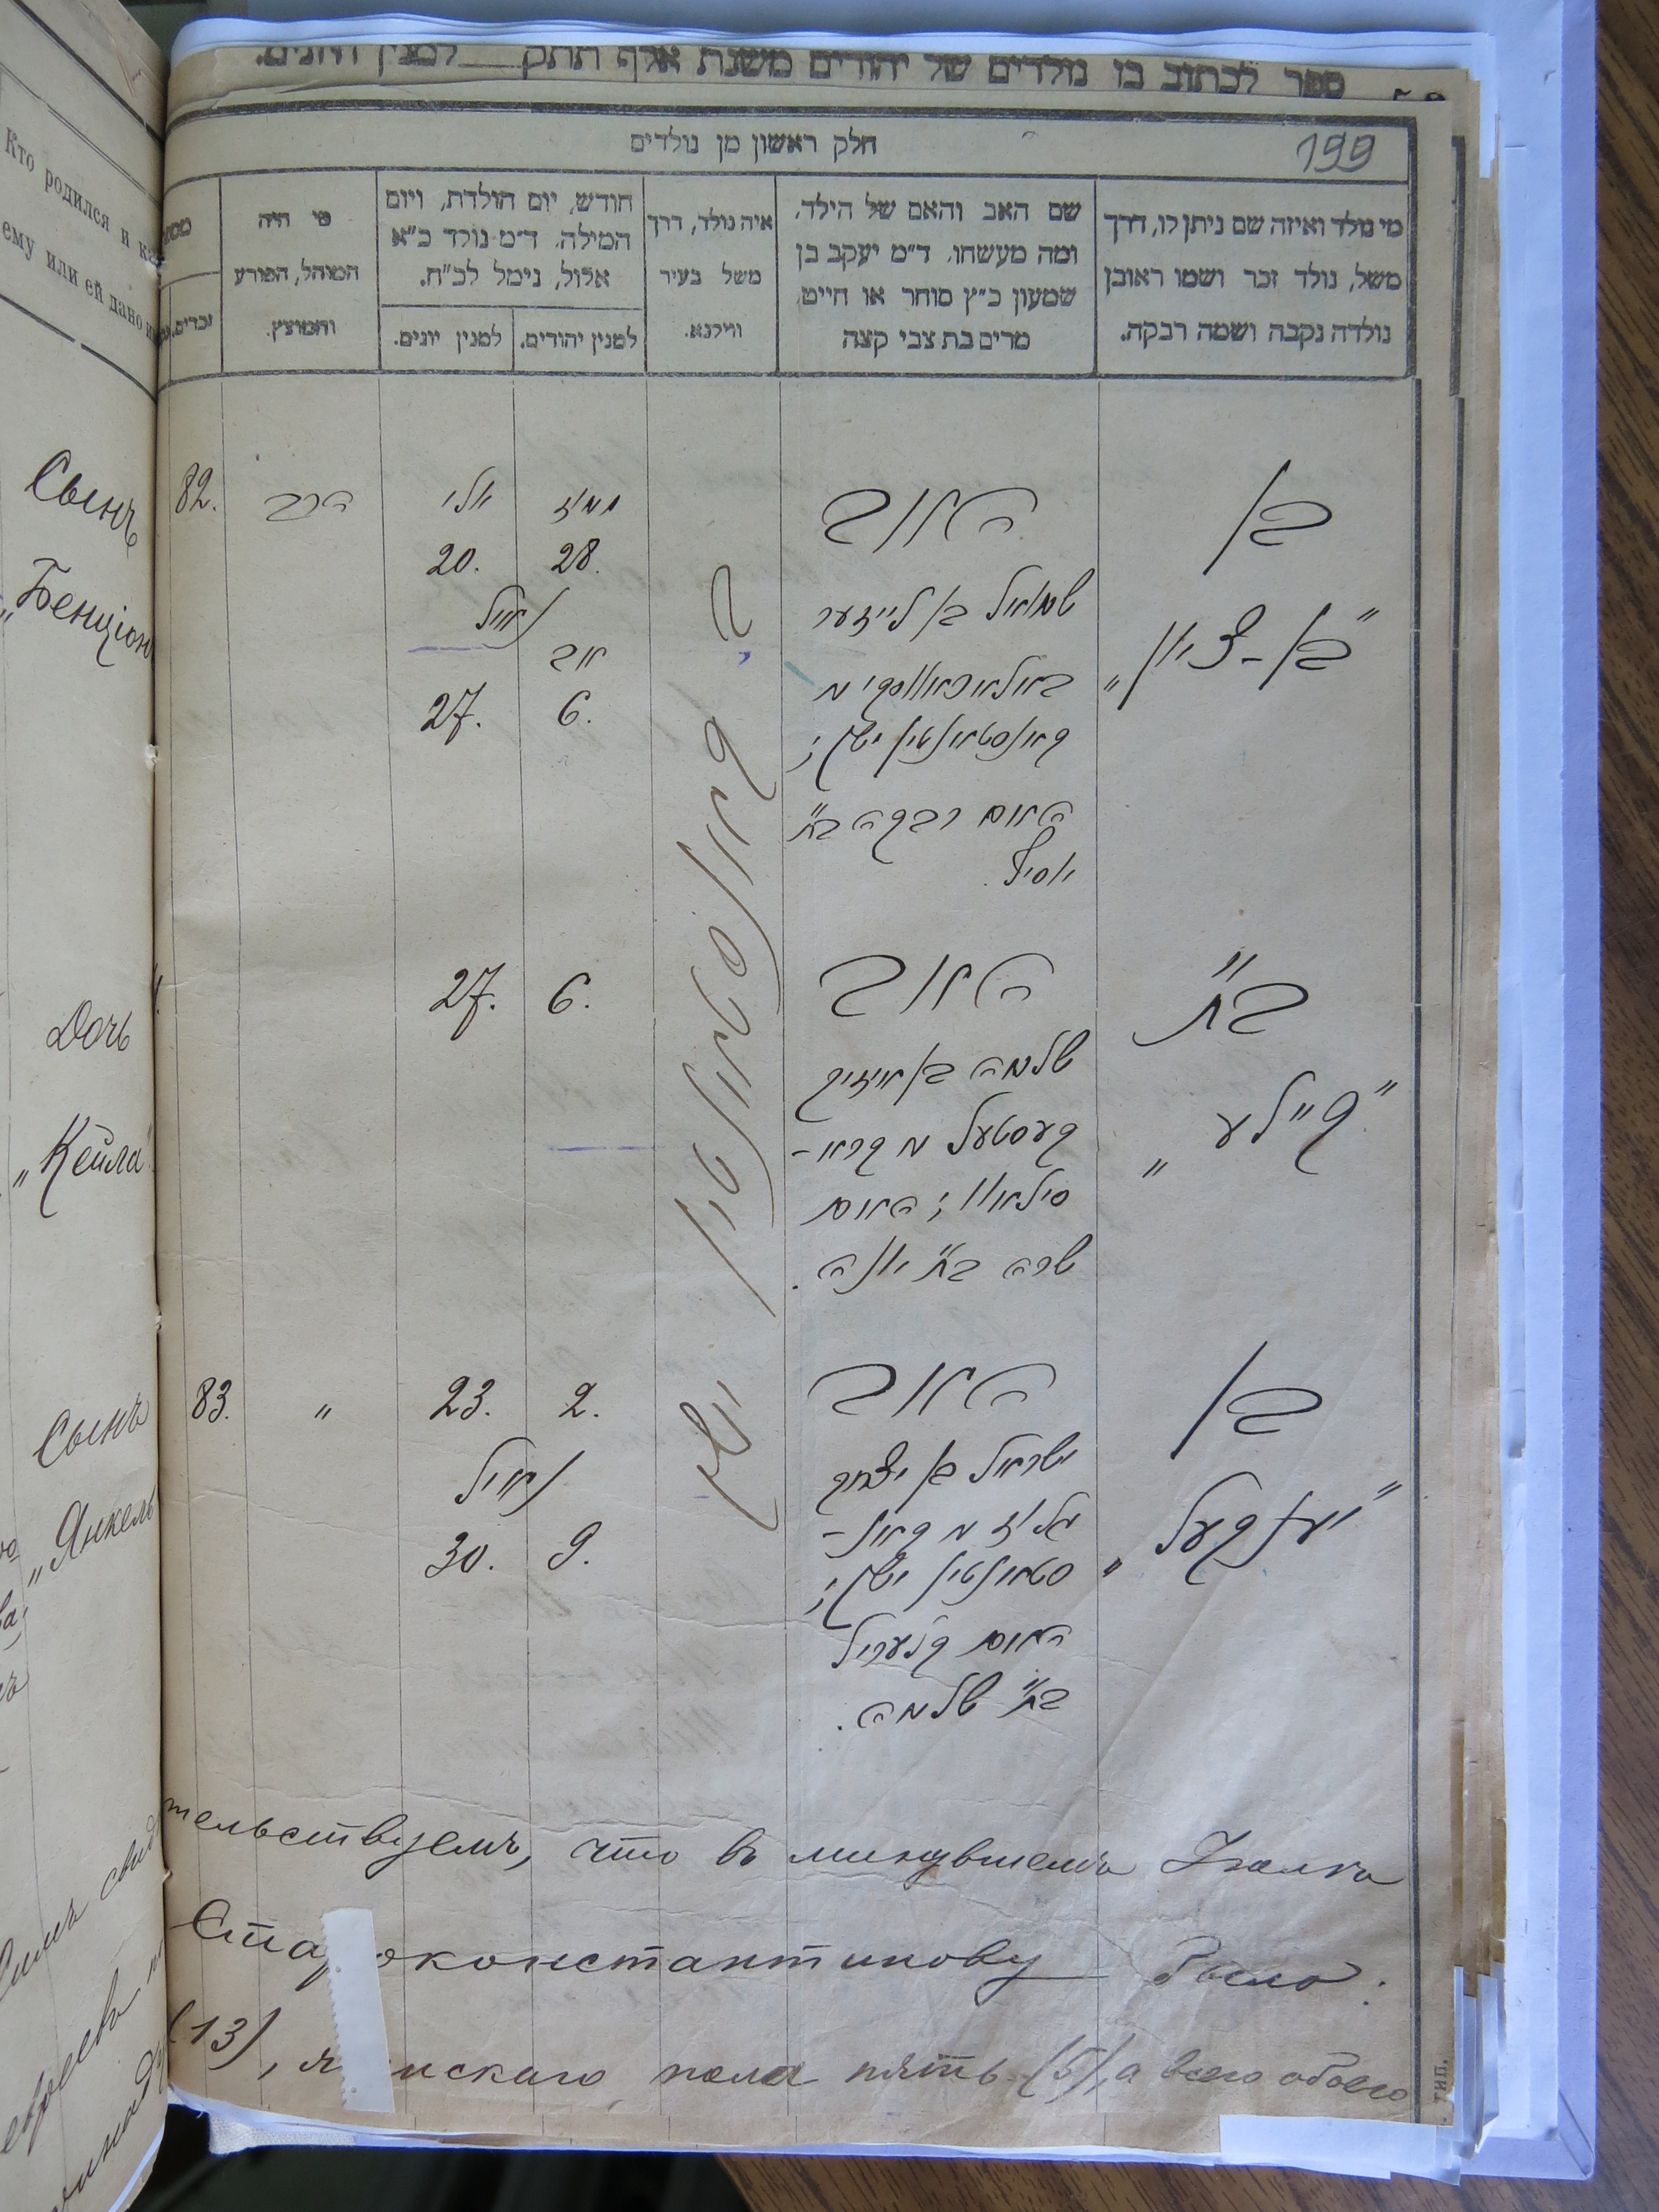 ספר לכתוב בו נולדים של יהודים משנת אלף תתק למנין היונים.
199
חלק ראשון מן נולדים
מי נולד ואיזה שם ניתן לו, דרך
משל, נולד זכר ושמו ראובן
נולדה נקבה ושמה רבקה.
שם האב והאם של הילד,
ומה מעשהו. ד״מ יעקב בן
שמעון כ״ץ סוחר או חייט,
מרים בת צבי קצה
איה נולד, דרך
משל בעיר
ווילנא.
חודש, יום הולדת, ויום
המילה. ד״מ נולד כ״א
אלול, נימל לכ״ח.
למנין יהודים.
למנין יונים.
מי היה
המוהל, הפורע
והמוצץ.
זכרים.
בן
"בן-ציון"
האב
שמואל בן לייזער
קאנסטאנטין ישן;
האם רבקה בת
יוסיף.
ק׳
קאנסטאנטין
ישן
תמוז
28.
אב
6.
יולי
20.
נימול
27.
הרב
82.
בת
"קיילע"
האב
שלמה בן אייזיק
סילאוו; האם
שרה בת יונה.
6.
27.
בן
"יענקעל"
האב
ישראל בן יצחק
מקאנ-
סטאנטין ישן;
האם
בת שלמה.
2.
9.
23.
נימול
30.
"
83.
Кто родился и ка
ему или ей дано и
Сынъ
„Бенціон
Дочь
„Кейла"
Сынъ
„Янкель
тельствуемъ, что въ минувшемъ
Ста оконстантинову было:
(13), ж нскаго пола пять (5), а всего обоего
тип.